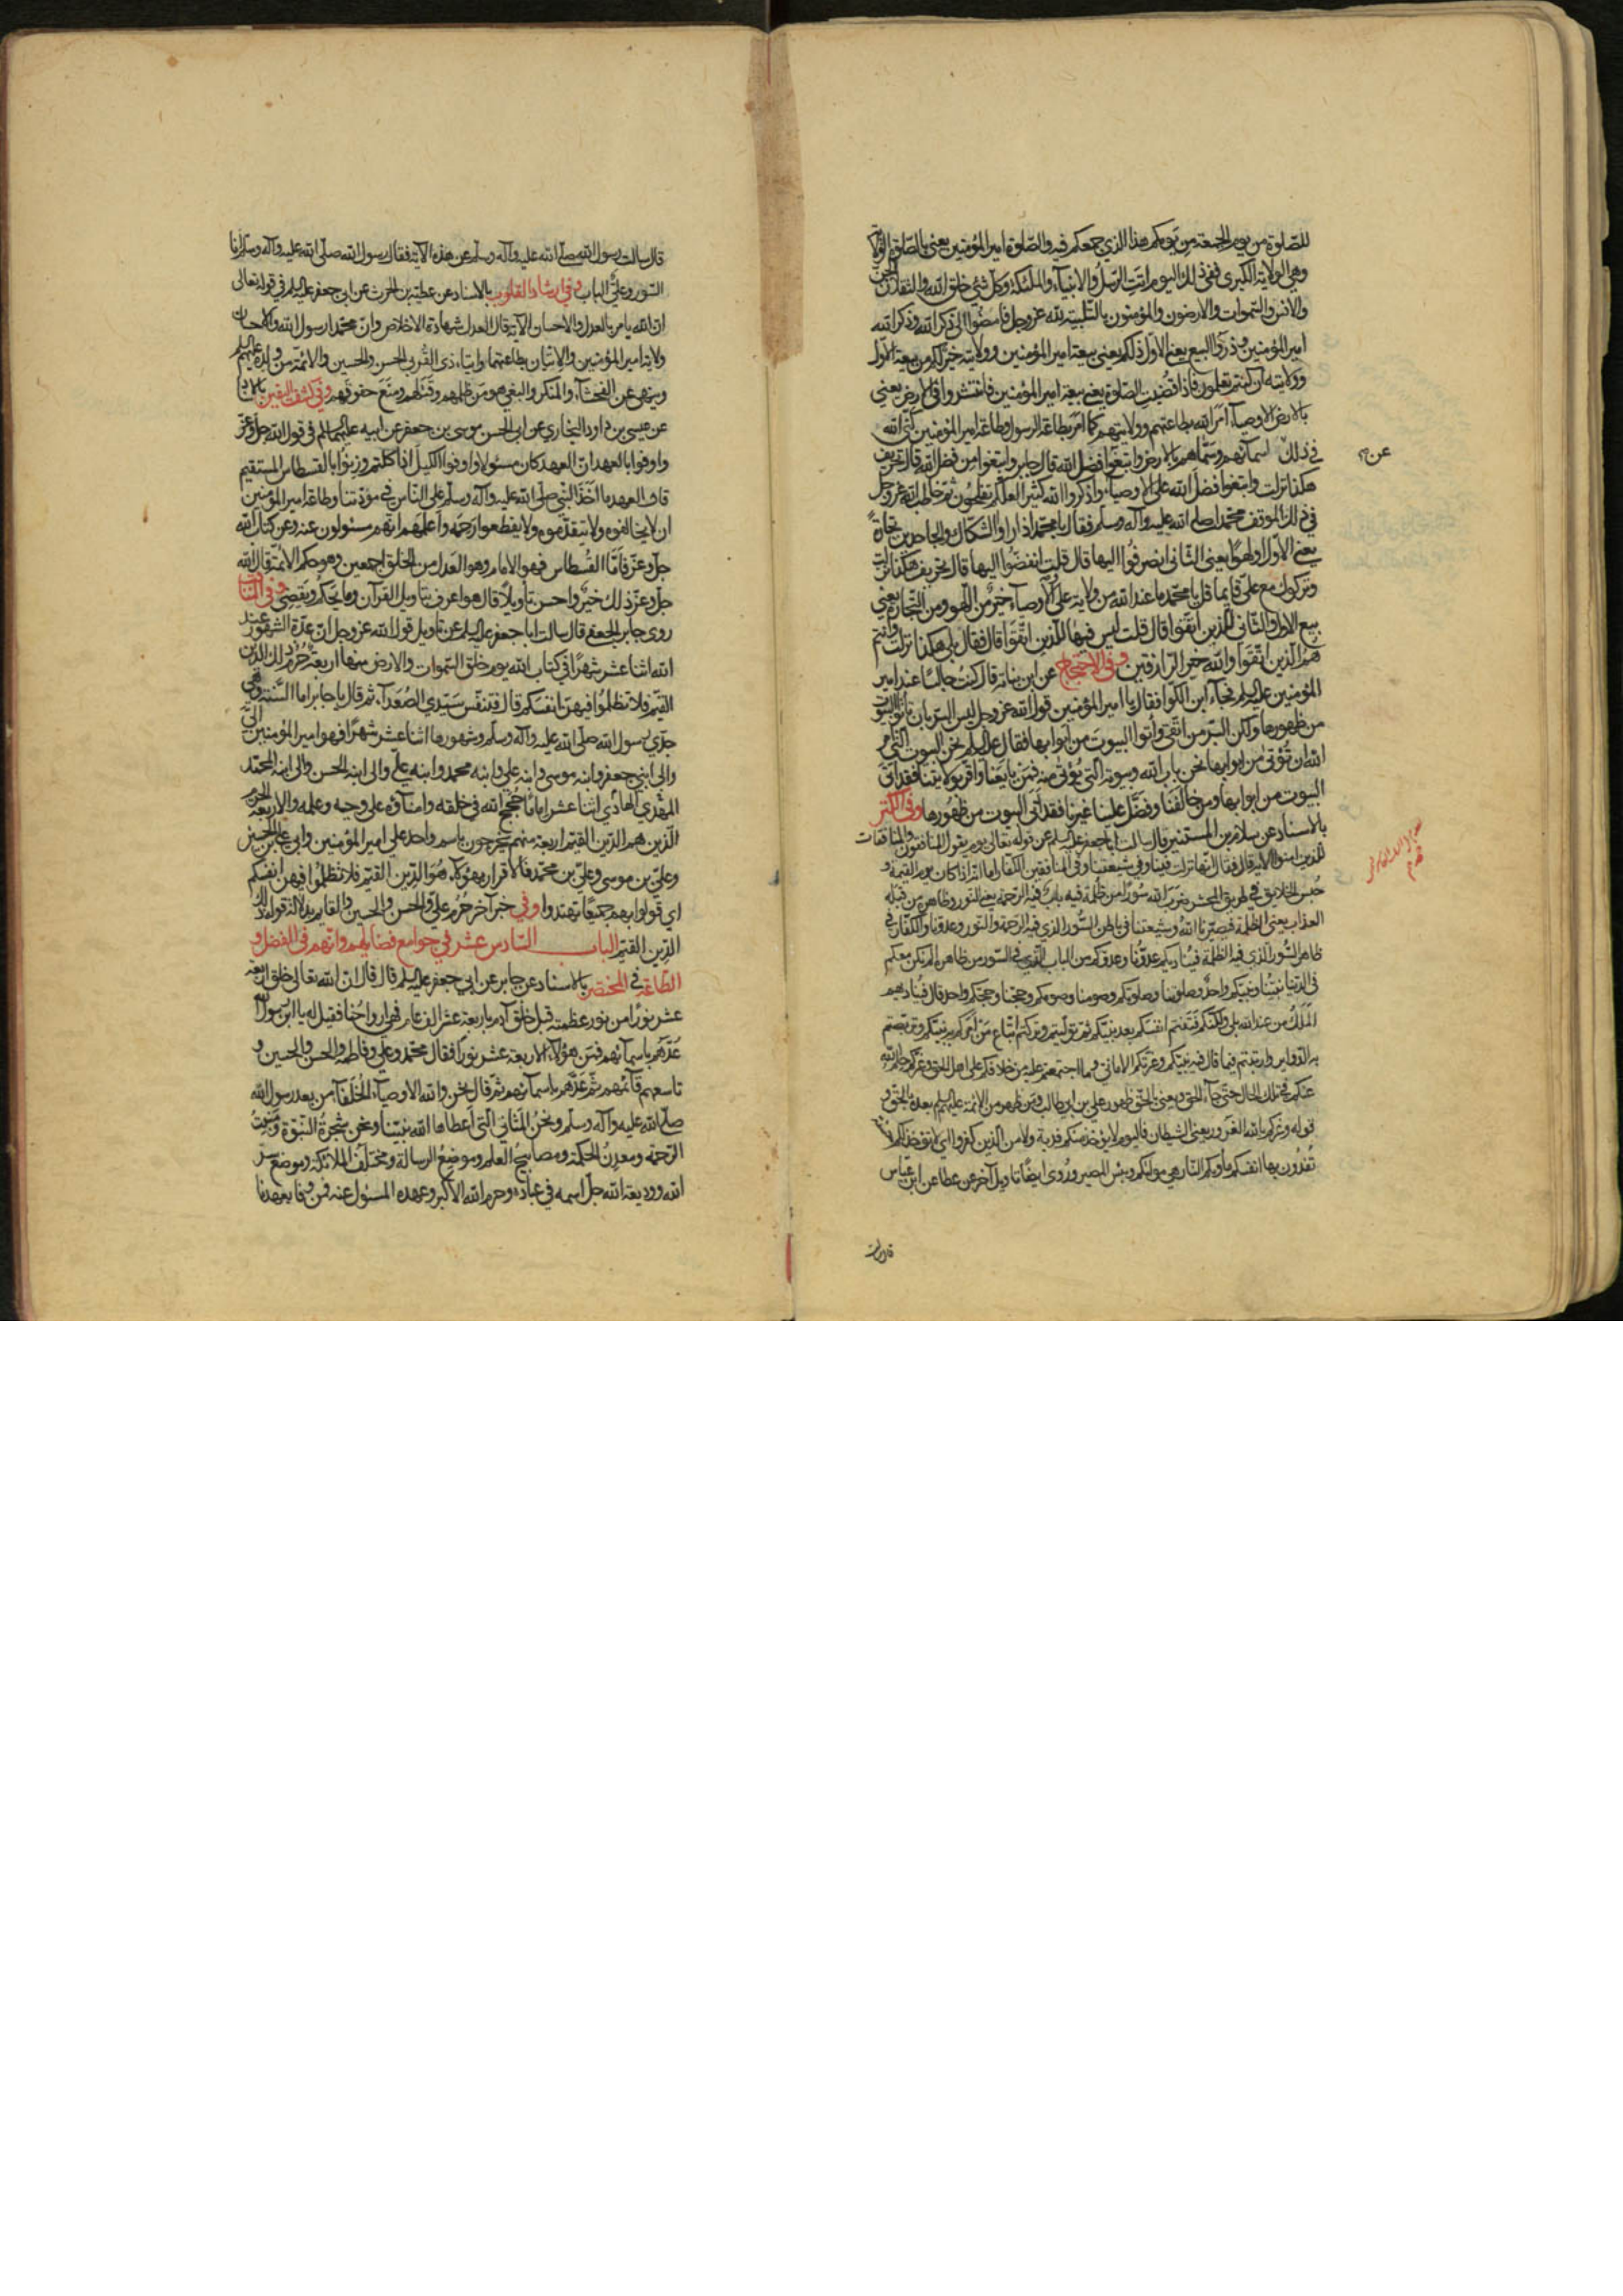 للصّلوة من يوم الجمعة من يومكم هذا الذي جمعكم فيه والصّلوة امير المؤمنين يعني بالصّلوة الولاية
وهي الولاية الكبرى ففي ذلك اليوم اتت الرّسل والانبيآء والملئكة وكلّ شئ خلق الله والثقلان الجنّ
والانس والسّموات والارضون والمؤمنون بالتّلبية لله عزوجل فامضوا الى ذكر الله وذكر الله
امير المؤمنين وذروا البيع يعني الاول ذلكم يعني بيعة امير المؤمنين وولايته خير لكم من بيعة الاوّل
وولايته ان كنتم تعلمون فاذا قضيت الصّلوة يعني بيعة امير المؤمنين فانتشروا في الارض يعني
بالارض الاوصيآء امر الله بطاعتهم وولايتهم كما امر بطاعة الرسول وطاعة امير المؤمنين كنى الله
في ذلك عن اسمآئهم وسمّاهم بالارض وابتغوا فضل الله قال جابر وابتغوا من فضل الله قال تحريف
هكذا نزلت وابتغوا فضل الله على الاوصيآء واذكروا الله كثيرا لعلّكم تفلحون ثم خاطب الله عزوجل
في ذلك الموقف محمّدا صلى الله عليه وآله وسلم فقال يا محمّد اذا راوا الشكاك والجاحدين تجارة
يعني الاول او لهوا يعني الثّاني انصرفوا اليها قال قلت انفضّوا اليها قال تحريف هكذا نزلت
وتركوك مع عليّ قايما قل يا محمّد ما عند الله من ولاية علي والاوصيآء خير من اللهو ومن التّجارة يعني
بيع الاول والثّاني للذين اتقوا قال قلت ليس فيها للّذين اتّقوا قال فقال بلى هكذا نزلت وانتم
هم الّذين اتّقوا والله خير الرّازقين وفي الاحتجاج عن ابن نباتة قال كنت جالسا عند امير
المؤمنين عليه السلم فجآء ابن الكوّا فقال يا امير المؤمنين قول الله عزوجل ليس البرّ بان تاتوا البيوت
من ظهورها ولكن البرّ من اتّقى وأتوا البيوت من ابوابها فقال عليه السلم نحن البيوت الّتي امر
الله ان تؤتى من ابوابها نحن باب الله وبيوته الّتي يؤتى منه فمن بايعنا واقرّ بولايتنا فقد اتى
البيوت من ابوابها ومن خالفنا وفضّل علينا غيرنا فقد اتى البيوت من ظهورها وفي الكنز
بالاسناد عن سلام بن المستنير قال سالت ابا جعفر عليه السلم عن قوله تعالى يوم يقول المنافقون والمنافقات
للّذين امنوا الاية قال فقال انّها نزلت فينا وفي شيعتنا وفي المنافقين الكفّار اما انّه اذا كان يوم القيمة و
حبس الخلايق في طريق المحشر ضرب الله سورا من ظلمة فيه باب فيه الرّحمة يعني النور وظاهره من قبله
العذاب يعني الظلمة فيصيّرنا الله وشيعتنا في باطن السّور الذي فيه الرّحمة والنّور وعدوّنا والكفّار في
ظاهر السّور الّذي فيه الظلمة فيناديكم عدوّنا وعدوّكم من الباب الذي في السّور من ظاهره الم نكن معكم
في الدّنيا نبيّنا ونبيّكم واحد وصلوتنا وصلوتكم وصومنا وصومكم وحجّنا وحجّكم واحد قال فيناديهم
الملك من عند الله بلى ولكنّكم فتنتم انفسكم بعد نبيّكم ثم تولّيتم وتركتم اتّباع من امركم به نبيّكم وتربّصتم
به الدّواير وارتبتم فيما قال فيه نبيّكم وغرّتكم الاماني وما اجتمعتم عليه من خلافكم على اهل الحق وغرّكم حلم الله
عنكم في تلك الحال حتى جآء الحق ويعني بالحقّ ظهور علي بن ابي طالب ومن ظهر من الائمة عليهم السلم بعده بالحق و
قوله وغرّكم بالله الغرور يعني الشيطان فاليوم لا يؤخذ منكم فدية ولا من الذين كفروا
تفدون بها انفسكم ماويكم النار هي موليكم وبئس المصير وروى ايضا تاويل آخر عن عطا عن ابن عبّاس
قال سالت
قال سالت رسول الله صلى الله عليه وآله وسلم عن هذه الآية فقال رسول الله صلّى الله عليه وآله وسلّم انا
السّور وعليّ الباب وفي ارشاد القلوب بالاسناد عن عطية بن الحرث عن ابي جعفر عليه السلم في قوله تعالى
ان الله يامر بالعدل والاحسان الآية قال العدل شهادة الاخلاص وانّ محمّدا رسول الله والاحسان
ولاية امير المؤمنين والاتيان بطاعتهما وايتآء ذي القربى الحسن والحسين والائمّة من ولده عليهم السلم
وينهى عن الفحشآء والمنكر والبغي هو من ظلمهم وقتلهم ومنع حقوقهم وفي كشف اليقين بالاسناد
عن عيسى بن داود النجاري عن ابي الحسن موسى بن جعفر عن ابيه عليهما السلم في قول الله جلّ وعزّ
واوفوا بالعهد انّ العهد كان مسئولا واوفوا الكيل اذا كلتم وزنوا بالقسطاس المستقيم
قال العهد ما اخذ النّبي صلى الله عليه وآله وسلم على النّاس في مودّتنا وطاعة امير المؤمنين
ان لا يخالفوه ولا يتقدّموه ولا يقطعوا رحمه واعلمهم انّهم مسئولون عنه وعن كتاب الله
جلّ وعزّ فامّا القسطاس فهو الامام وهو العدل من الخلق اجمعين وهو حكم الائمّة قال الله
جلّ وعزّ ذلك خير واحسن تأويلا قال هو اعرف بتاويل القرآن وما يحكم ويقضي وفي المناقب
روى جابر الجعفي قال سالت ابا جعفر عليه السلم عن تاويل قول الله عزوجل انّ عدّة الشهور عند
الله اثنا عشر شهرا في كتاب الله يوم خلق السّموات والارض منها اربعة حرم ذلك الدّين
القيّم فلا تظلموا فيهنّ انفسكم قال فتنفّس سيّدي الصّعدآء ثم قال يا جابر اما السّنة فهي
جدّي رسول الله صلّى الله عليه وآله وسلّم وشهورها اثنا عشر شهرا فهو امير المؤمنين اليّ
والى ابني جعفر وابنه موسى وابنه علي وابنه محمد وابنه عليّ والى ابنه الحسن والى ابنه المحمّد
المهدي الهادي اثنا عشر اماما حجج الله في خلقه وامنآؤه على وحيه وعلمه والاربعة الحرم
الّذين هم الدّين القيّم اربعة منهم يخرجون باسم واحد علي امير المؤمنين وابي علي بن الحسين
وعليّ بن موسى وعليّ بن محمّد فالاقرار بهؤلآء هو الدّين القيّم فلا تظلموا فيهنّ انفسكم
اي قولوا بهم جميعا تهتدوا وفي خبر آخر حرم عليّ والحسن والحسين والقايم بدلالة قوله ذلك
الدّين القيّم الباب السّادس عشر في جوامع فضايلهم وانّهم في الفضل و
الطّاعة في المختصر بالاسناد عن جابر عن ابي جعفر عليه السلم قال قال انّ الله تعالى خلق اربعة
عشر نورا من نور عظمته قبل خلق آدم باربعة عشر الف عام فهي ارواحنا فقيل له يا ابن رسول الله
عدّهم باسمآئهم فمن هؤلآء الاربعة عشر نورا فقال محمّد وعلي وفاطمة والحسن والحسين و
تاسعهم قآئمهم ثمّ عدّهم باسمآئهم ثمّ قال نحن والله الاوصيآء الخلفآء من بعد رسول الله
صلّى الله عليه وآله وسلم ونحن المثاني الّتي اعطاها الله نبيّنا ونحن شجرة النّبوّة ومنبت
الرّحمة ومعدن الحكمة ومصابيح العلم وموضع الرسالة ومختلف الملائكة وموضع سرّ
الله ووديعة الله جلّ اسمه في عباده وحرم الله الاكبر وعهده المسئول عنه فمن وفا بعهدنا